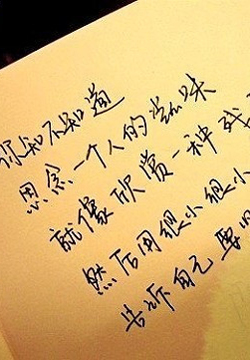 你知不知道
思念一个人的滋味
就像欣赏一种残
然后用很小很小
告诉自己 要